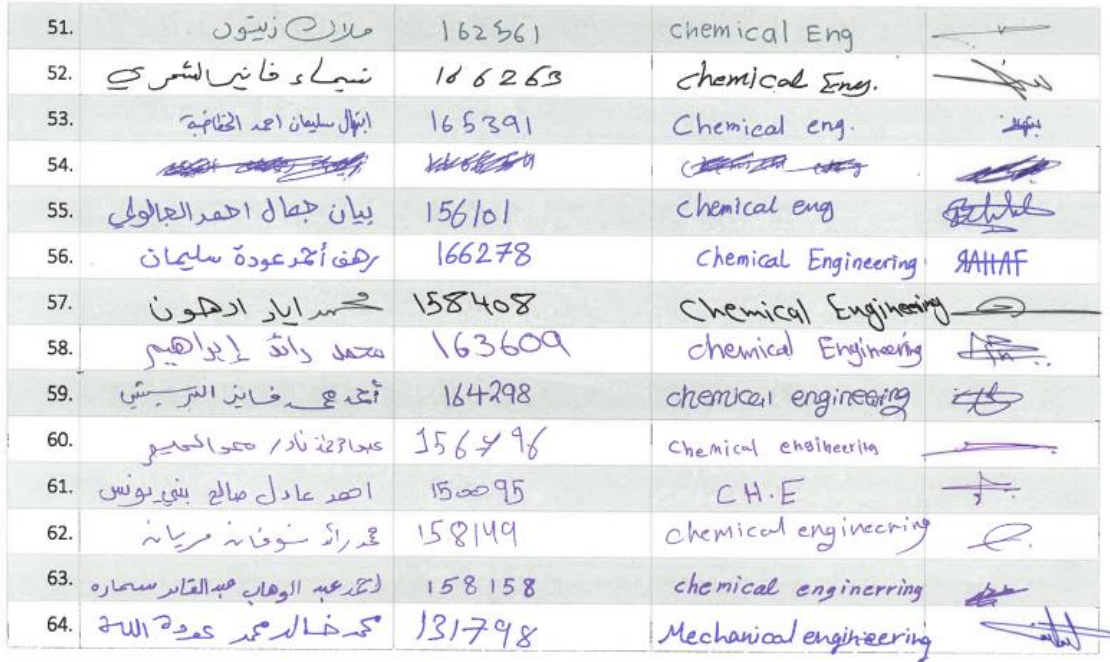 51. ملاك زيتون 162361 chemical Eng
52. شيماء فانيرالشمري 166263 chemical Eng.
53. ابتهال سليمان احمد 165391 Chemical eng.
54.
55. بيان جمال احمد العالولي 156101 Chemical eng
56. رهف أحمد عودة سليمان 166278 Chemical Engineering RAHAF
57. محمد اياد ادهون 158408 Chemical Engineering
58. محمد رائد إبراهيم 163609 chemical Engineering
59. أحمد محمد فايز 164298 chemical engineering
60. نادر Chemical engineering
61. احمد عادل صالح بني يونس 150095 CH.E
62. محمد رائد 158149 chemical engineering
63. احمد عبد الوهاب عبدالقادر سماره 158158 chemical enginerring
64. محمد خالد محمد عودة الله 131798 Mechanical engineering